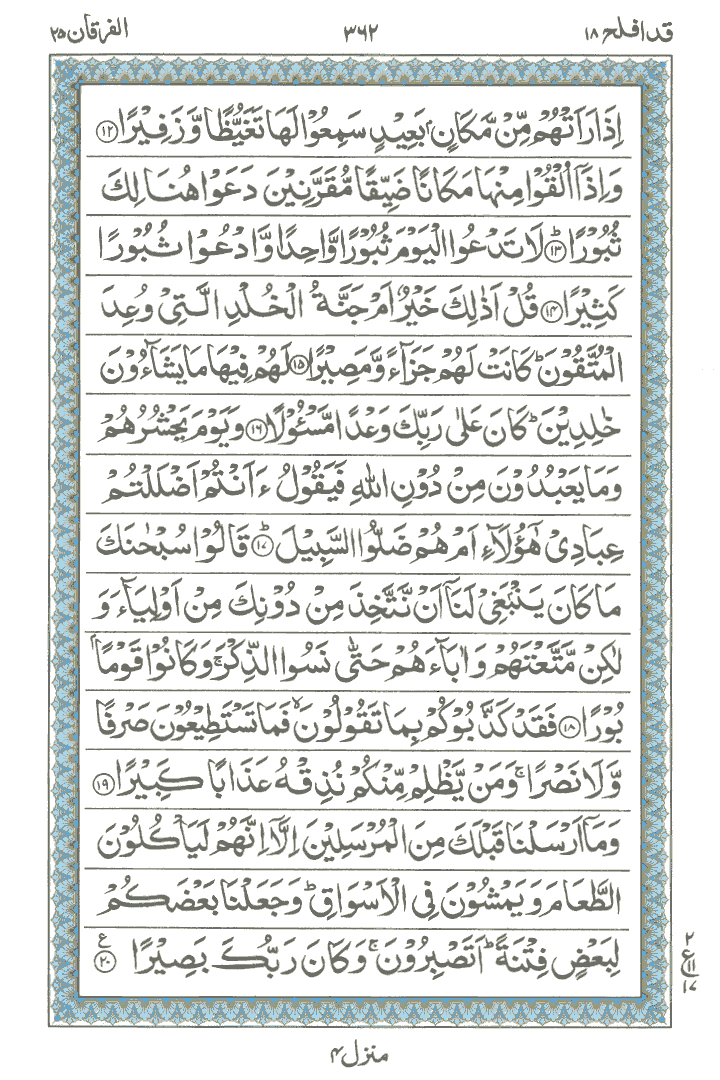 قد افلح ۱۸ ۳۶۲ الفرقان ۲۵
اِذَا رَاَتْهُمْ مِّنْ مَّكَانٍۭ بَعِيْدٍ سَمِعُوْا لَهَا تَغَيُّظًا وَّ زَفِيْرًا ۝۱۲
وَ اِذَاۤ اُلْقُوْا مِنْهَا مَكَانًا ضَيِّقًا مُّقَرَّنِيْنَ دَعَوْا هُنَالِكَ
ثُبُوْرًا ؕ۝۱۳ لَا تَدْعُوا الْيَوْمَ ثُبُوْرًا وَّاحِدًا وَّ ادْعُوْا ثُبُوْرًا
كَثِيْرًا ۝۱۴ قُلْ اَذٰلِكَ خَيْرٌ اَمْ جَنَّةُ الْخُلْدِ الَّتِيْ وُعِدَ
الْمُتَّقُوْنَ ؕ كَانَتْ لَهُمْ جَزَآءً وَّ مَصِيْرًا ۝۱۵ لَهُمْ فِيْهَا مَا يَشَآءُوْنَ
خٰلِدِيْنَ ؕ كَانَ عَلٰى رَبِّكَ وَعْدًا مَّسْـُٔوْلًا ۝۱۶ وَ يَوْمَ يَحْشُرُهُمْ
وَ مَا يَعْبُدُوْنَ مِنْ دُوْنِ اللّٰهِ فَيَقُوْلُ ءَاَنْتُمْ اَضْلَلْتُمْ
عِبَادِيْ هٰۤؤُلَآءِ اَمْ هُمْ ضَلُّوا السَّبِيْلَ ؕ۝۱۷ قَالُوْا سُبْحٰنَكَ
مَا كَانَ يَنْۢبَغِيْ لَنَاۤ اَنْ نَّتَّخِذَ مِنْ دُوْنِكَ مِنْ اَوْلِيَآءَ وَ
لٰكِنْ مَّتَّعْتَهُمْ وَ اٰبَآءَهُمْ حَتّٰى نَسُوا الذِّكْرَ ۚ وَ كَانُوْا قَوْمًۢا
بُوْرًا ۝۱۸ فَقَدْ كَذَّبُوْكُمْ بِمَا تَقُوْلُوْنَ ۙ فَمَا تَسْتَطِيْعُوْنَ صَرْفًا
وَّ لَا نَصْرًا ۚ وَ مَنْ يَّظْلِمْ مِّنْكُمْ نُذِقْهُ عَذَابًا كَبِيْرًا ۝۱۹
وَ مَاۤ اَرْسَلْنَا قَبْلَكَ مِنَ الْمُرْسَلِيْنَ اِلَّاۤ اِنَّهُمْ لَيَاْكُلُوْنَ
الطَّعَامَ وَ يَمْشُوْنَ فِي الْاَسْوَاقِ ؕ وَ جَعَلْنَا بَعْضَكُمْ
لِبَعْضٍ فِتْنَةً ؕ اَتَصْبِرُوْنَ ۚ وَ كَانَ رَبُّكَ بَصِيْرًا ۝۲۰ ع
۲
ع ۱۱
۱۷
منزل ۴